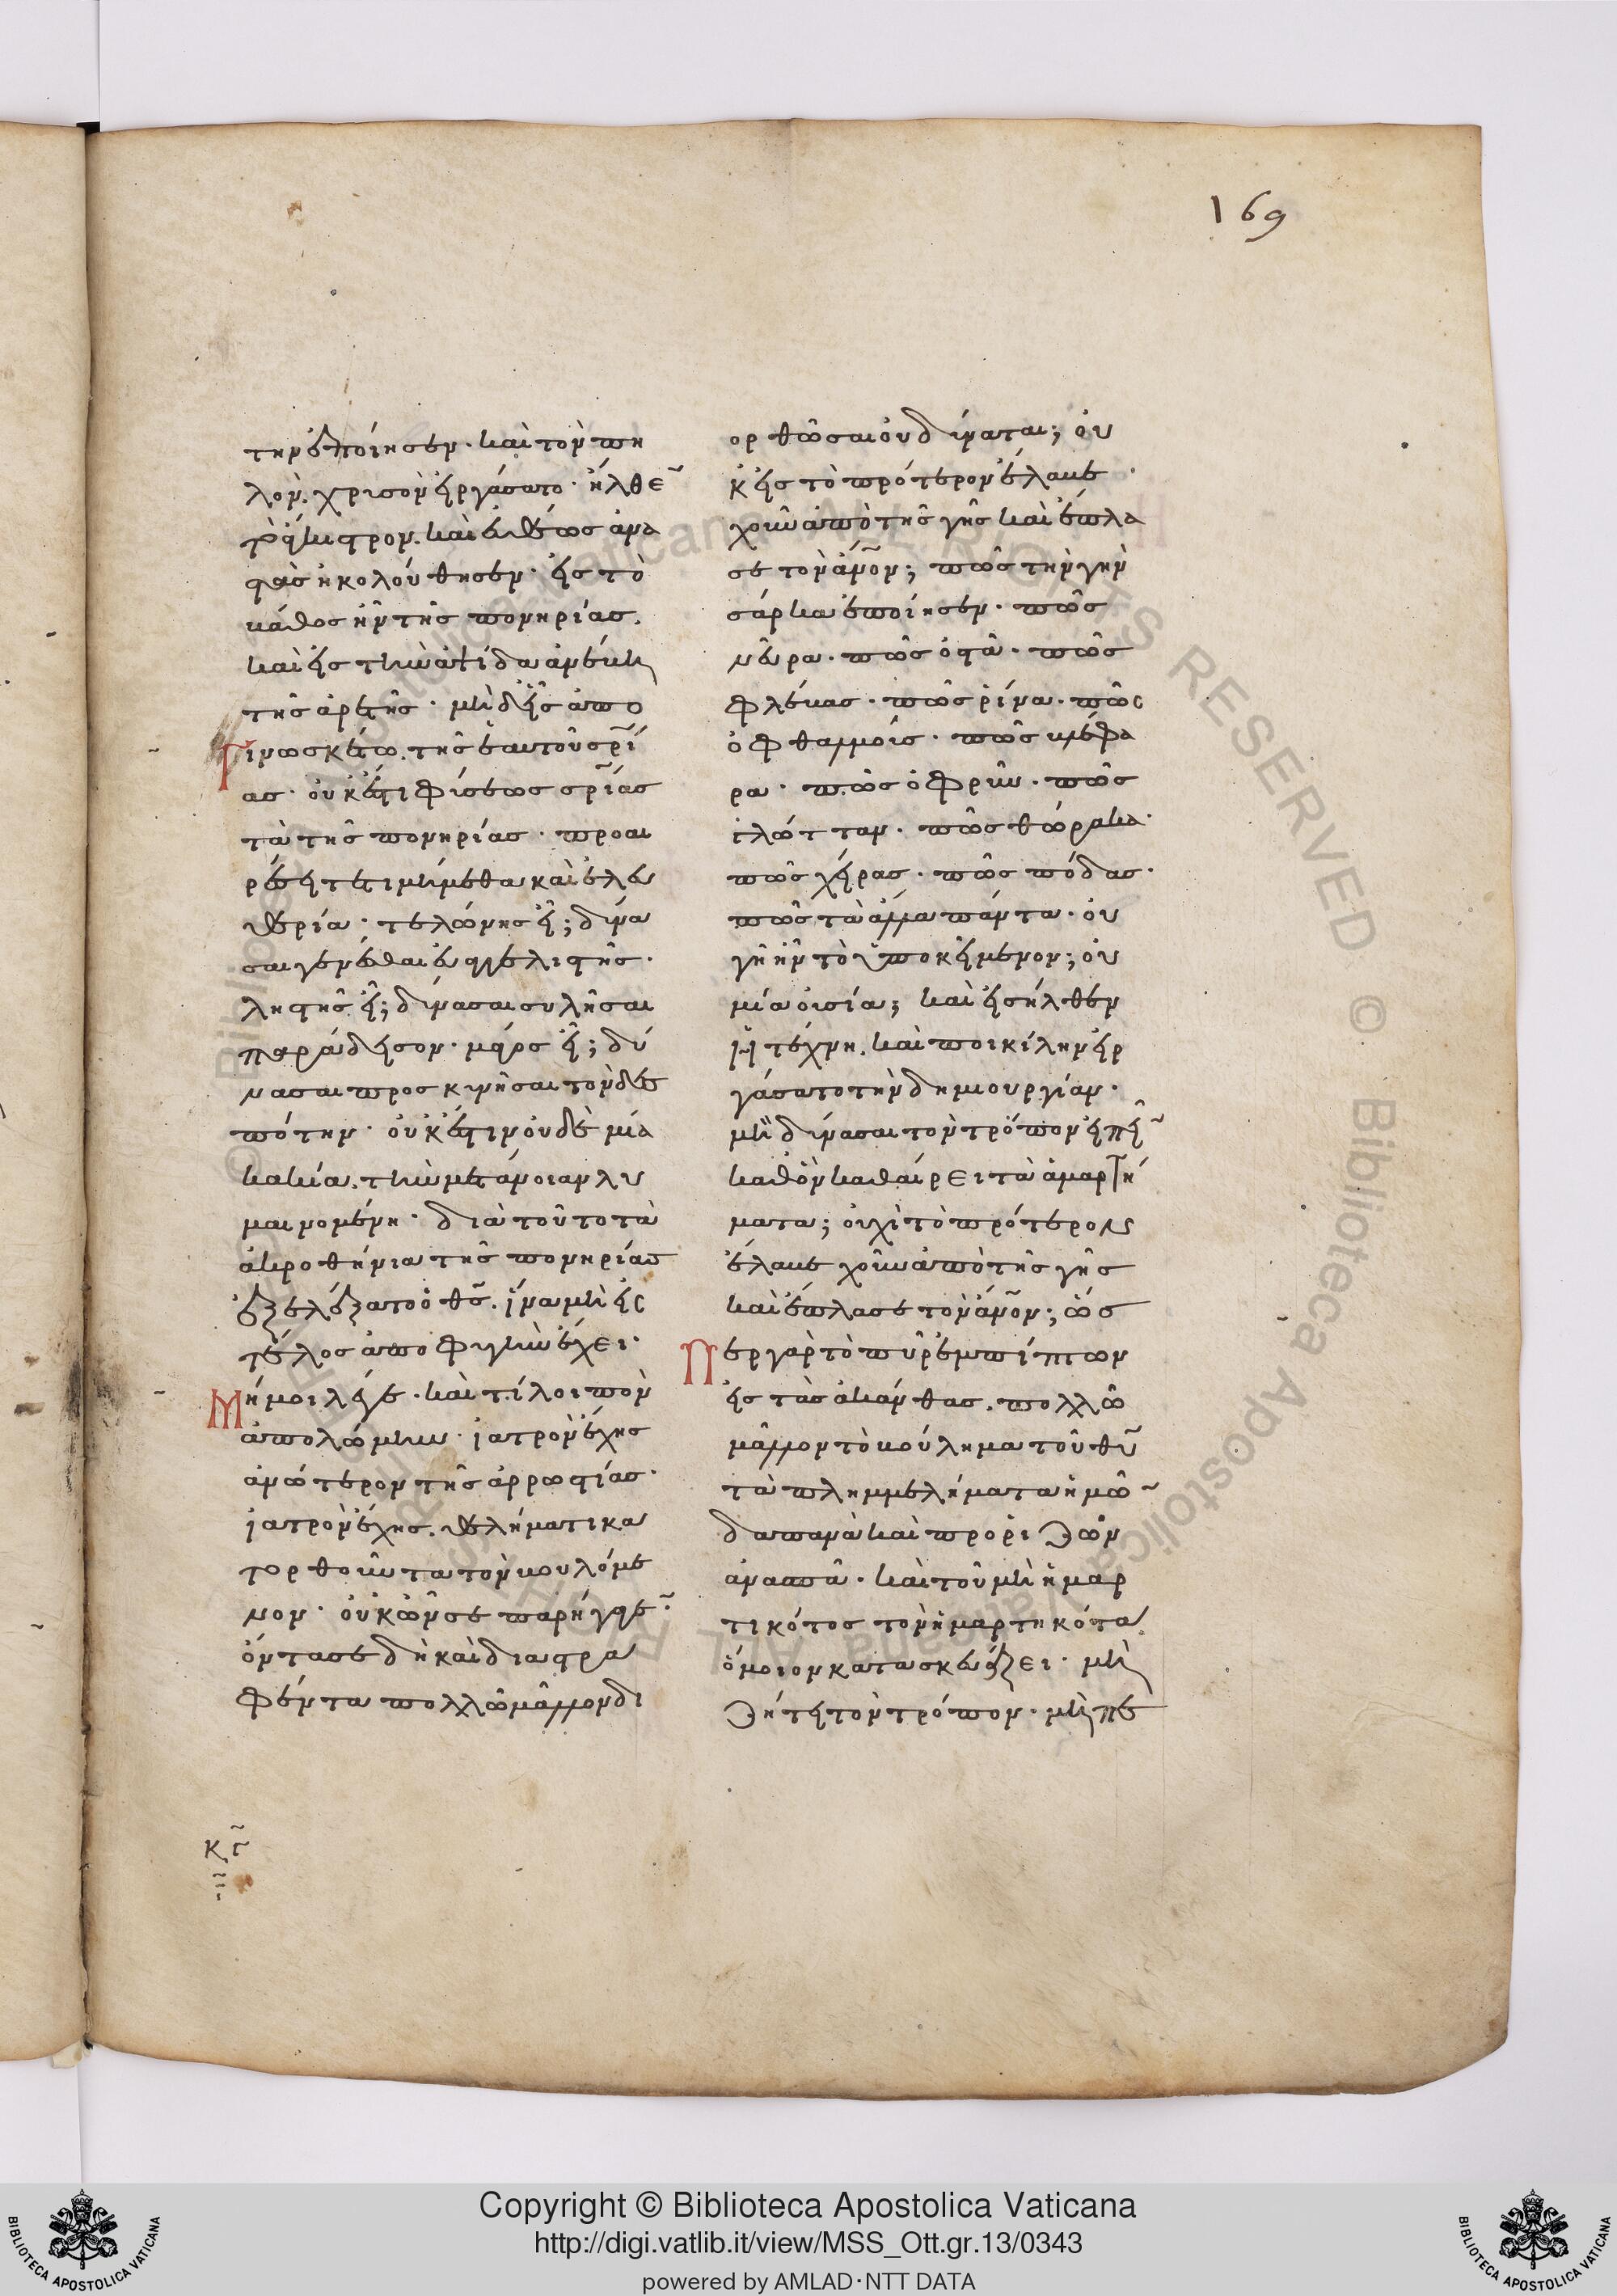 169
την ἐποίησεν· καὶ τὸν πη
λὸν. χρισὸν ἠργάσατο· ἦλθε
τὸ ἄγκιστρον. καὶ εὐθέως ἀνα
στὰς ἠκολούθησεν· εἰς τὸ
βάθος ἦν τῆς πονηρίας.
καὶ εἰς τὴν ἁψίδα ἀνέβη
τῆς ἀρετῆς· μὴδεῖς ἀπο
Γινωσκέτω. τῆς ἑαυτοῦ σρί
ας· οὐκ ἔστι φύσεως σρίας
τὰ τῆς πονηρίας· προαι
ρέσει τετιμήμεθα καὶ ἐλευ
θερία· τελώνης εἶ; δύνα
σαι γενέσθαι εὐαγγελιστῆς·
ληστῆς εἶ; δύνασαι συλῆσαι
παράδεισον· μάγος εἶ; δύ
νασαι προσκυνῆσαι τὸν δεσ
πότην· οὐκ ἔστιν οὐδὲ μία
κακία. τὴν μετάνοιαν λυ
μαινομένη· διὰ τοῦτο τὰ
ἀκροθήνια τῆς πονηρίας
ἐξελέξατο ὁ θς. ἵνα μὴ εἰς
τέλος ἀποφυγὴν ἔχει·
Μή μοι λέγε· καὶ τί λοιπὸν
ἀπολώμην· ἰατρὸν ἔχης
ἀνώτερον τῆς ἀρρωστίας·
ἰατρὸν ἔχης. θελήματι κα
τορθοῦντα τὸν βουλόμε
νον· οὐκ ὦν σε παρήγαγε·
ὄντα σε δὴ καὶ διαστρα
φέντα πολλῶ μᾶλλον δι
ορθῶσαι οὐ δύναται; οὐ
κ εἰς τὸ πρότερον ἔλαβε
χοῦν ἀπὸ τῆς γῆς καὶ ἔπλα
σε τὸν ἄνον; πῶς τὴν γῆν
σάρκα ἐποίησεν· πῶς
νεῦρα· πῶς ὀστᾶ· πῶς
φλέβας· πῶς ῥίνα· πῶς
ὀφθαλμοὶς· πῶς βλέφα
ρα· πῶς ὀφρῦν· πῶς
γλώτταν· πῶς θώρακα·
πῶς χεῖρας· πῶς πόδας·
πῶς τὰ ἄλλα πάντα· οὐ
γῆ ἦν τὸ ὑποκείμενον; οὐ
μία οὐσία; καὶ εἰσῆλθεν
ἡ τέχνη. καὶ ποικίλην εἰρ
γάσατο τὴν δημιουργίαν·
μὴ δύνασαι τὸν τρόπον εἰπεῖ
καθ ὃν καθαίρει τὰ ἁμαρτή
ματα; οὐχὶ τὸ πρότερον
ἔλαβε χοῦν ἀπὸ τῆς γῆς
καὶ ἔπλασε τὸν ἄνον; ὥσ
Περ γὰρ τὸ πῦρ ἐμπίπτων
εἰς τὰς ἀκάνθας. πολλῶ
μᾶλλον τὸ βούλημα τοῦ θυ
τὰ πλημμελήματα ἡμῶ
δαπανὰ καὶ πρόριζων
ἀνασπᾶ· καὶ τοῦ μὴ ἡμαρ
τικότος τὸν ἡμαρτηκότα
ὅμοιον κατασκευάζει· μὴ
ζήτει τὸν τρόπον· μὴ πε
Copyright © Biblioteca Apostolica Vaticana
http://digi.vatlib.it/view/MSS_Ott.gr.13/0343
powered by AMLAD·NTT DATA